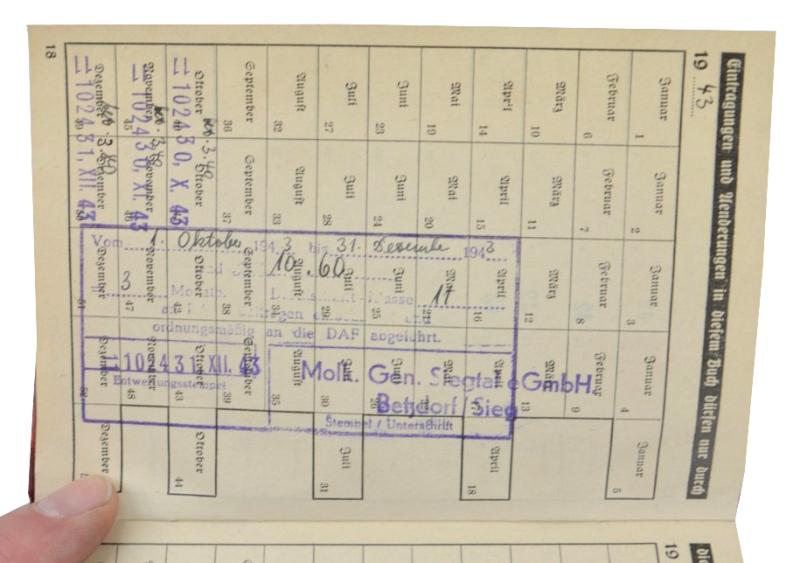 Eintragungen und Aenderungen in diesem Buch dürfen nur durch
19 43
Januar 1 Januar 2 Januar 3 Januar 4 Januar 5
Februar 6 Februar 7 Februar 8 Februar 9
März 10 März 11 März 12 März 13
April 14 April 15 April 16 April April 18
Mai 19 Mai 20 Mai
Juni 23 Juni 24 Juni 25
Juli 27 Juli 28 Juli 29 Juli 30 Juli 31
August 32 August 33 August August 35
September 36 September 37 September 38 September 39
Oktober Oktober Oktober 42 Oktober 43 Oktober 44
November 45 November 46 November 47 November 48
Dezember Dezember Dezember 51 Dezember 52 Dezember
18
3.40
1024 30. X. 43
3.40
1024 30. XI. 43
3.40
1024 31. XII. 43
Vom 1. Oktober 1943 bis 31. Dezember 1943
10.60
3 Monats 11
ordnungsmäßig an die DAF abgeführt.
1024 31. XII. 43
Entwertungsstempel
Molk. Gen. Sieglahe GmbH.
Betzdorf/Sieg
Stempel / Unterschrift
19